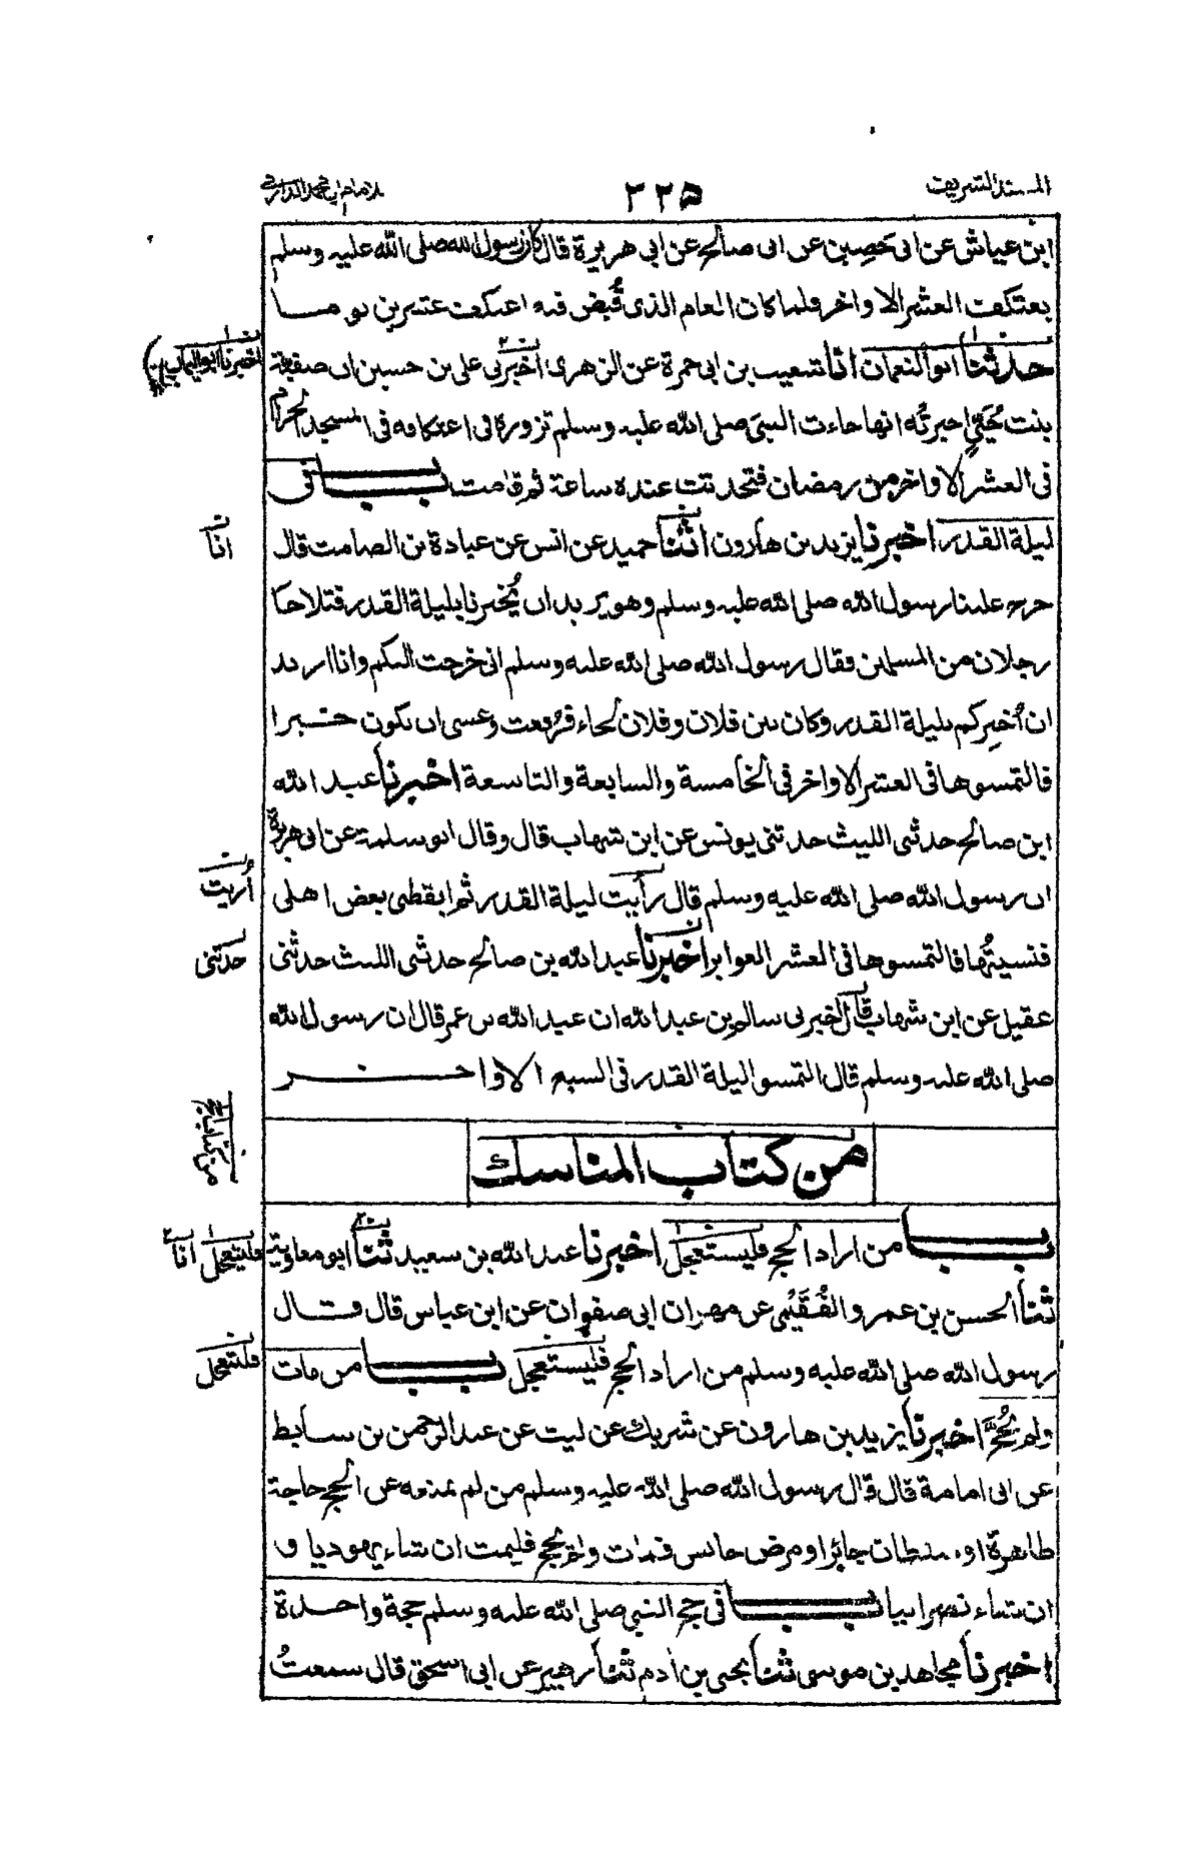 المسند الشريف
٢٢٥
للامام ابي محمد الدارمي
ابن عياش عن ابى حَصِين عن ابى صالح عن ابى هريرة قال كان رسول الله صلى الله عليه وسلم
يعتكف العشر الاواخر فلما كان العام الذى قُبض فيه اعتكف عشرين يوما
حدثنا ابو النعمان انا شعيب بن ابى حمزة عن الزهرى اخبرنى على بن حسين ان صفية
اخبرنا ابو اليمان
بنت حُيَيٍّ اخبرتُه انها جاءت النبىَ صلى الله عليه وسلم تزوره فى اعتكافه فى المسجد الحرام
فى العشر الاواخر من رمضان فتحدثت عنده ساعة ثم قامت بــاب فى
ليلة القدر اخبرنا يزيد بن هارون اثنا حميد عن انس عن عبادة بن الصامت قال
انا
خرج علينا رسول الله صلى الله عليه وسلم وهو يريد ان يُخبرنا بليلة القدر فتلاحا
رجلان من المسلمين فقال رسول الله صلى الله عليه وسلم انى خرجت اليكم وانا اريد
ان أُخبركم بليلة القدر وكان بين فلان وفلان لحاء فرُفعت وعسى ان يكون خيرا
فالتمسوها فى العشر الاواخر فى الخامسة والسابعة والتاسعة اخبرنا عبد الله
ابن صالح حدثنى الليث حدثنى يونس عن ابن شهاب قال وقال ابو سلمة عن ابى هريرة
ان رسول الله صلى الله عليه وسلم قال رأيت ليلة القدر ثم ايقظنى بعض اهلى
أُريت
فنسيتُها فالتمسوها فى العشر الغوابر اخبرنا عبد الله بن صالح حدثنى الليث حدثنى
حدثنى
عقيل عن ابن شهاب قال اخبرنى سالم بن عبد الله ان عبد الله بن عمر قال ان رسول الله
صلى الله عليه وسلم قال التمسوا ليلة القدر فى السبع الاواخر
من كتاب المناسك
من كتاب الحج
بــاب من اراد الحج فليستعجل اخبرنا عبد الله بن سعيد ثنا ابو معاوية
فليتعجل انا
ثنا الحسن بن عمرو الفُقَيْمى عن مهران ابى صفوان عن ابن عباس قال قال
رسول الله صلى الله عليه وسلم من اراد الحج فليستعجل بــاب من مات
فليتعجل
ولم يحُجَّ اخبرنا يزيد بن هارون عن شريك عن ليث عن عبد الرحمن بن سابط
عن ابى امامة قال قال رسول الله صلى الله عليه وسلم من لم يمنعه عن الحج حاجة
ظاهرة او سلطان جائر او مرض حابس فمات ولم يحج فليمت ان شاء يهوديا و
ان شاء نصرانيا بــاب فى حج النبى صلى الله عليه وسلم حجة واحدة
اخبرنا مجاهد بن موسى ثنا يحيى بن آدم ثنا زهير عن ابى اسحق قال سمعتُ